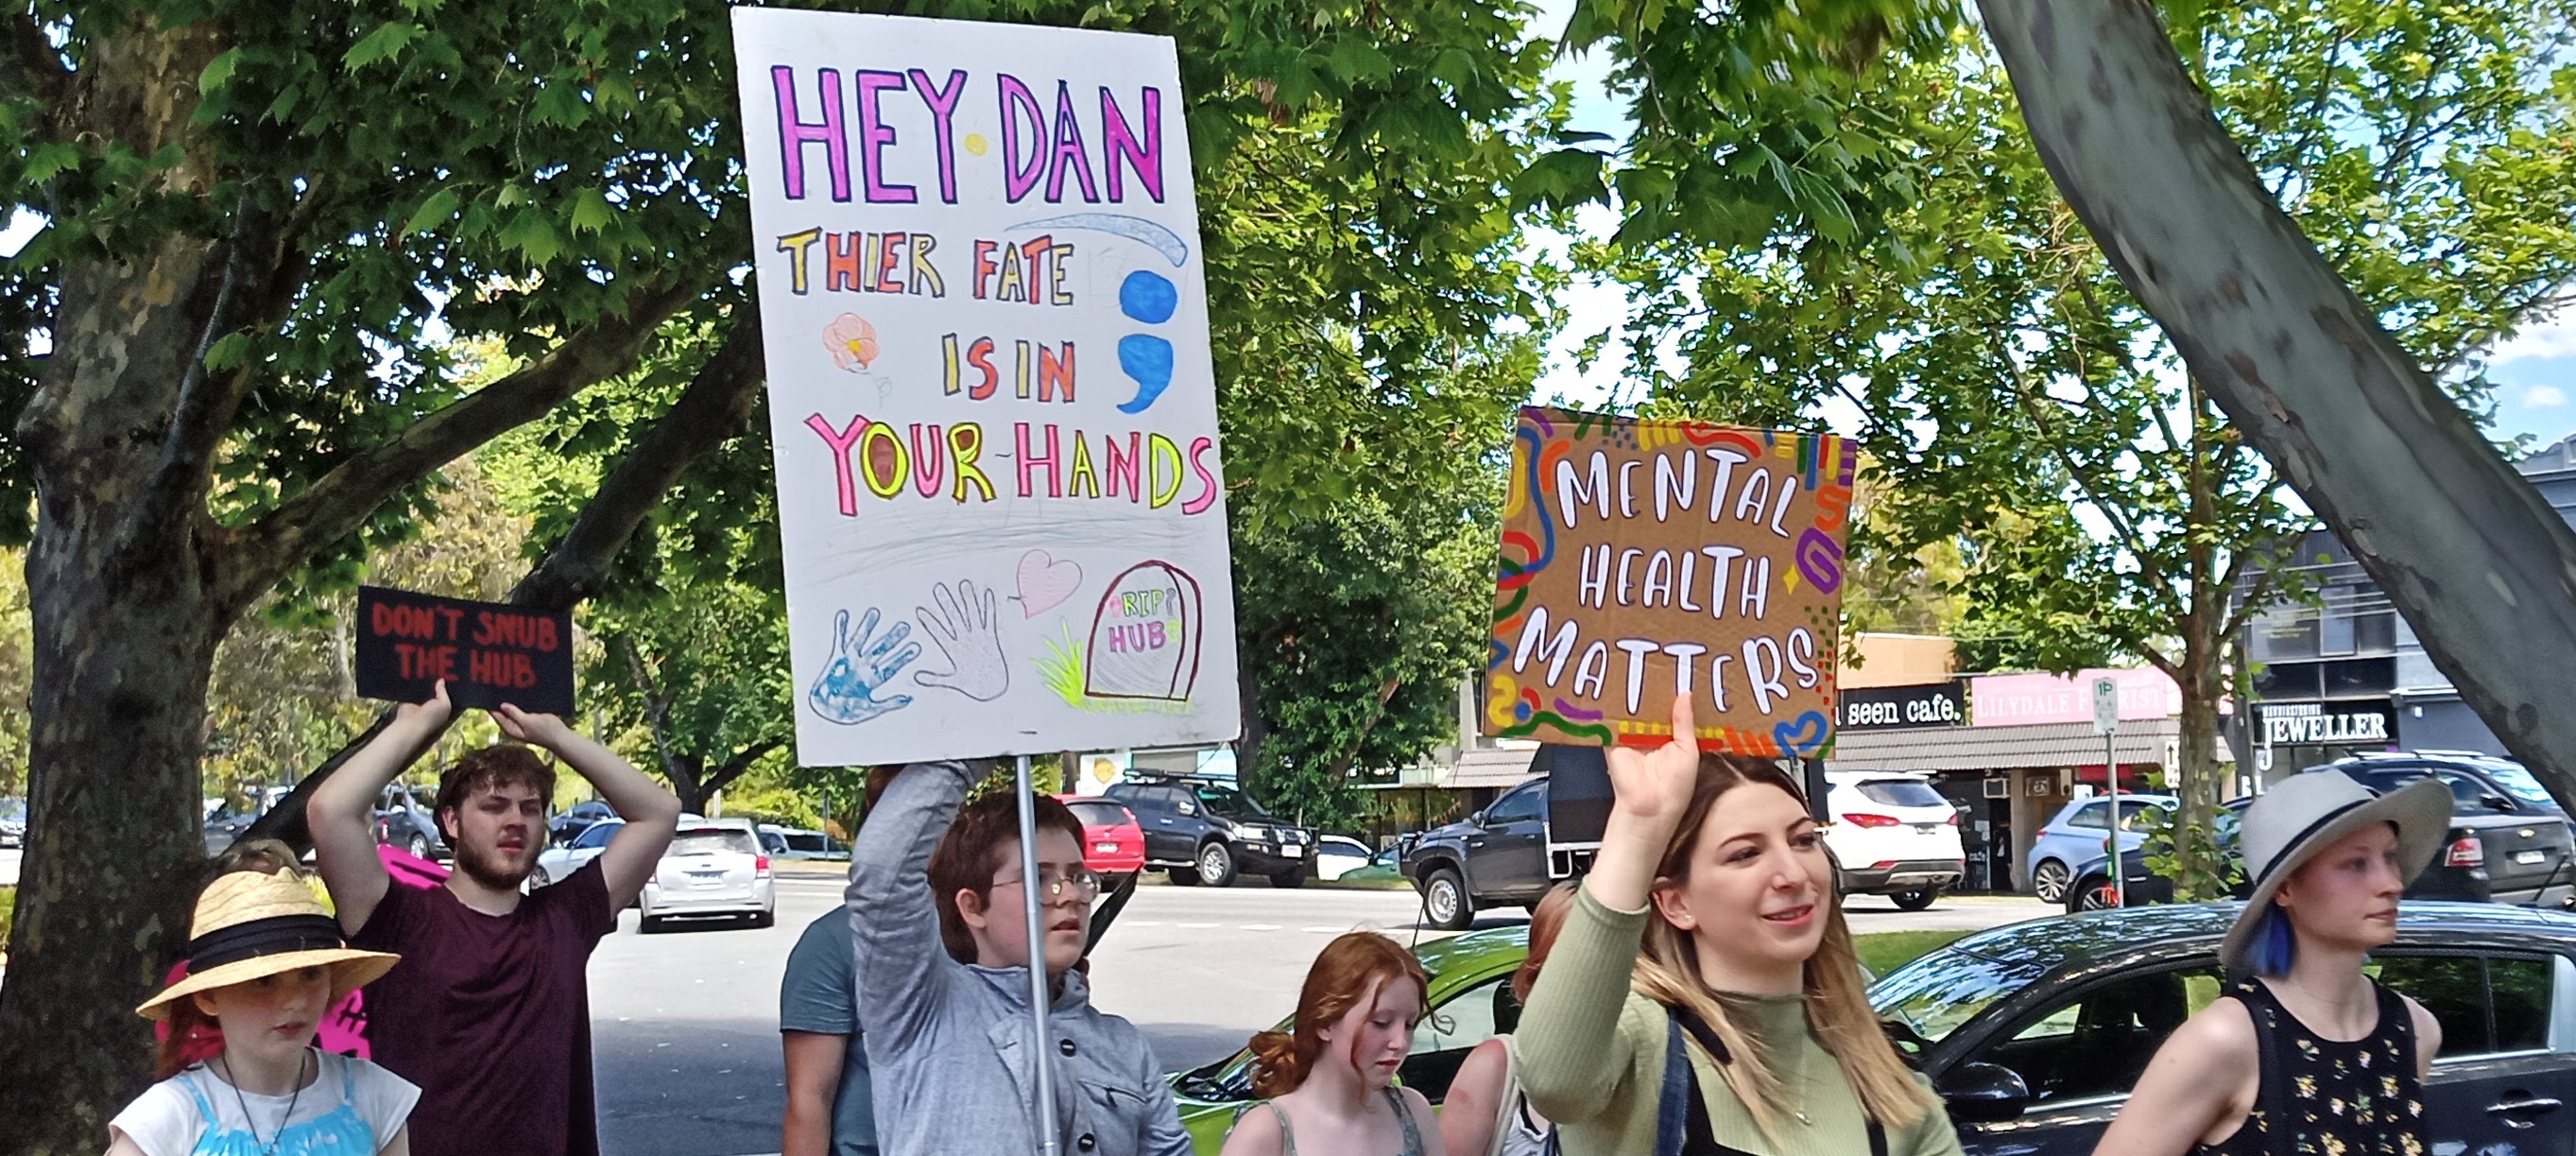 HEY DAN
THIER FATE
IS IN
;
YOUR HANDS
RIP?
HUB?
DON'T SNUB
THE HUB
MENTAL
HEALTH
MATTERS
seen cafe.
LILYDALE FLORIST
JEWELLER
1P